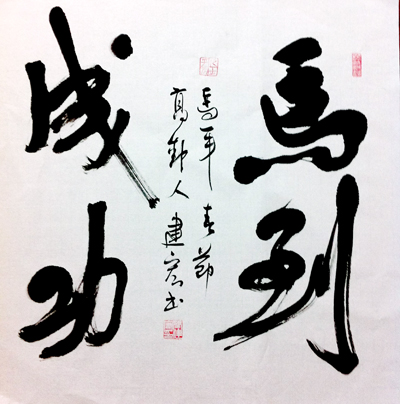 馬到
成功
馬年春節
高勤人建宏书